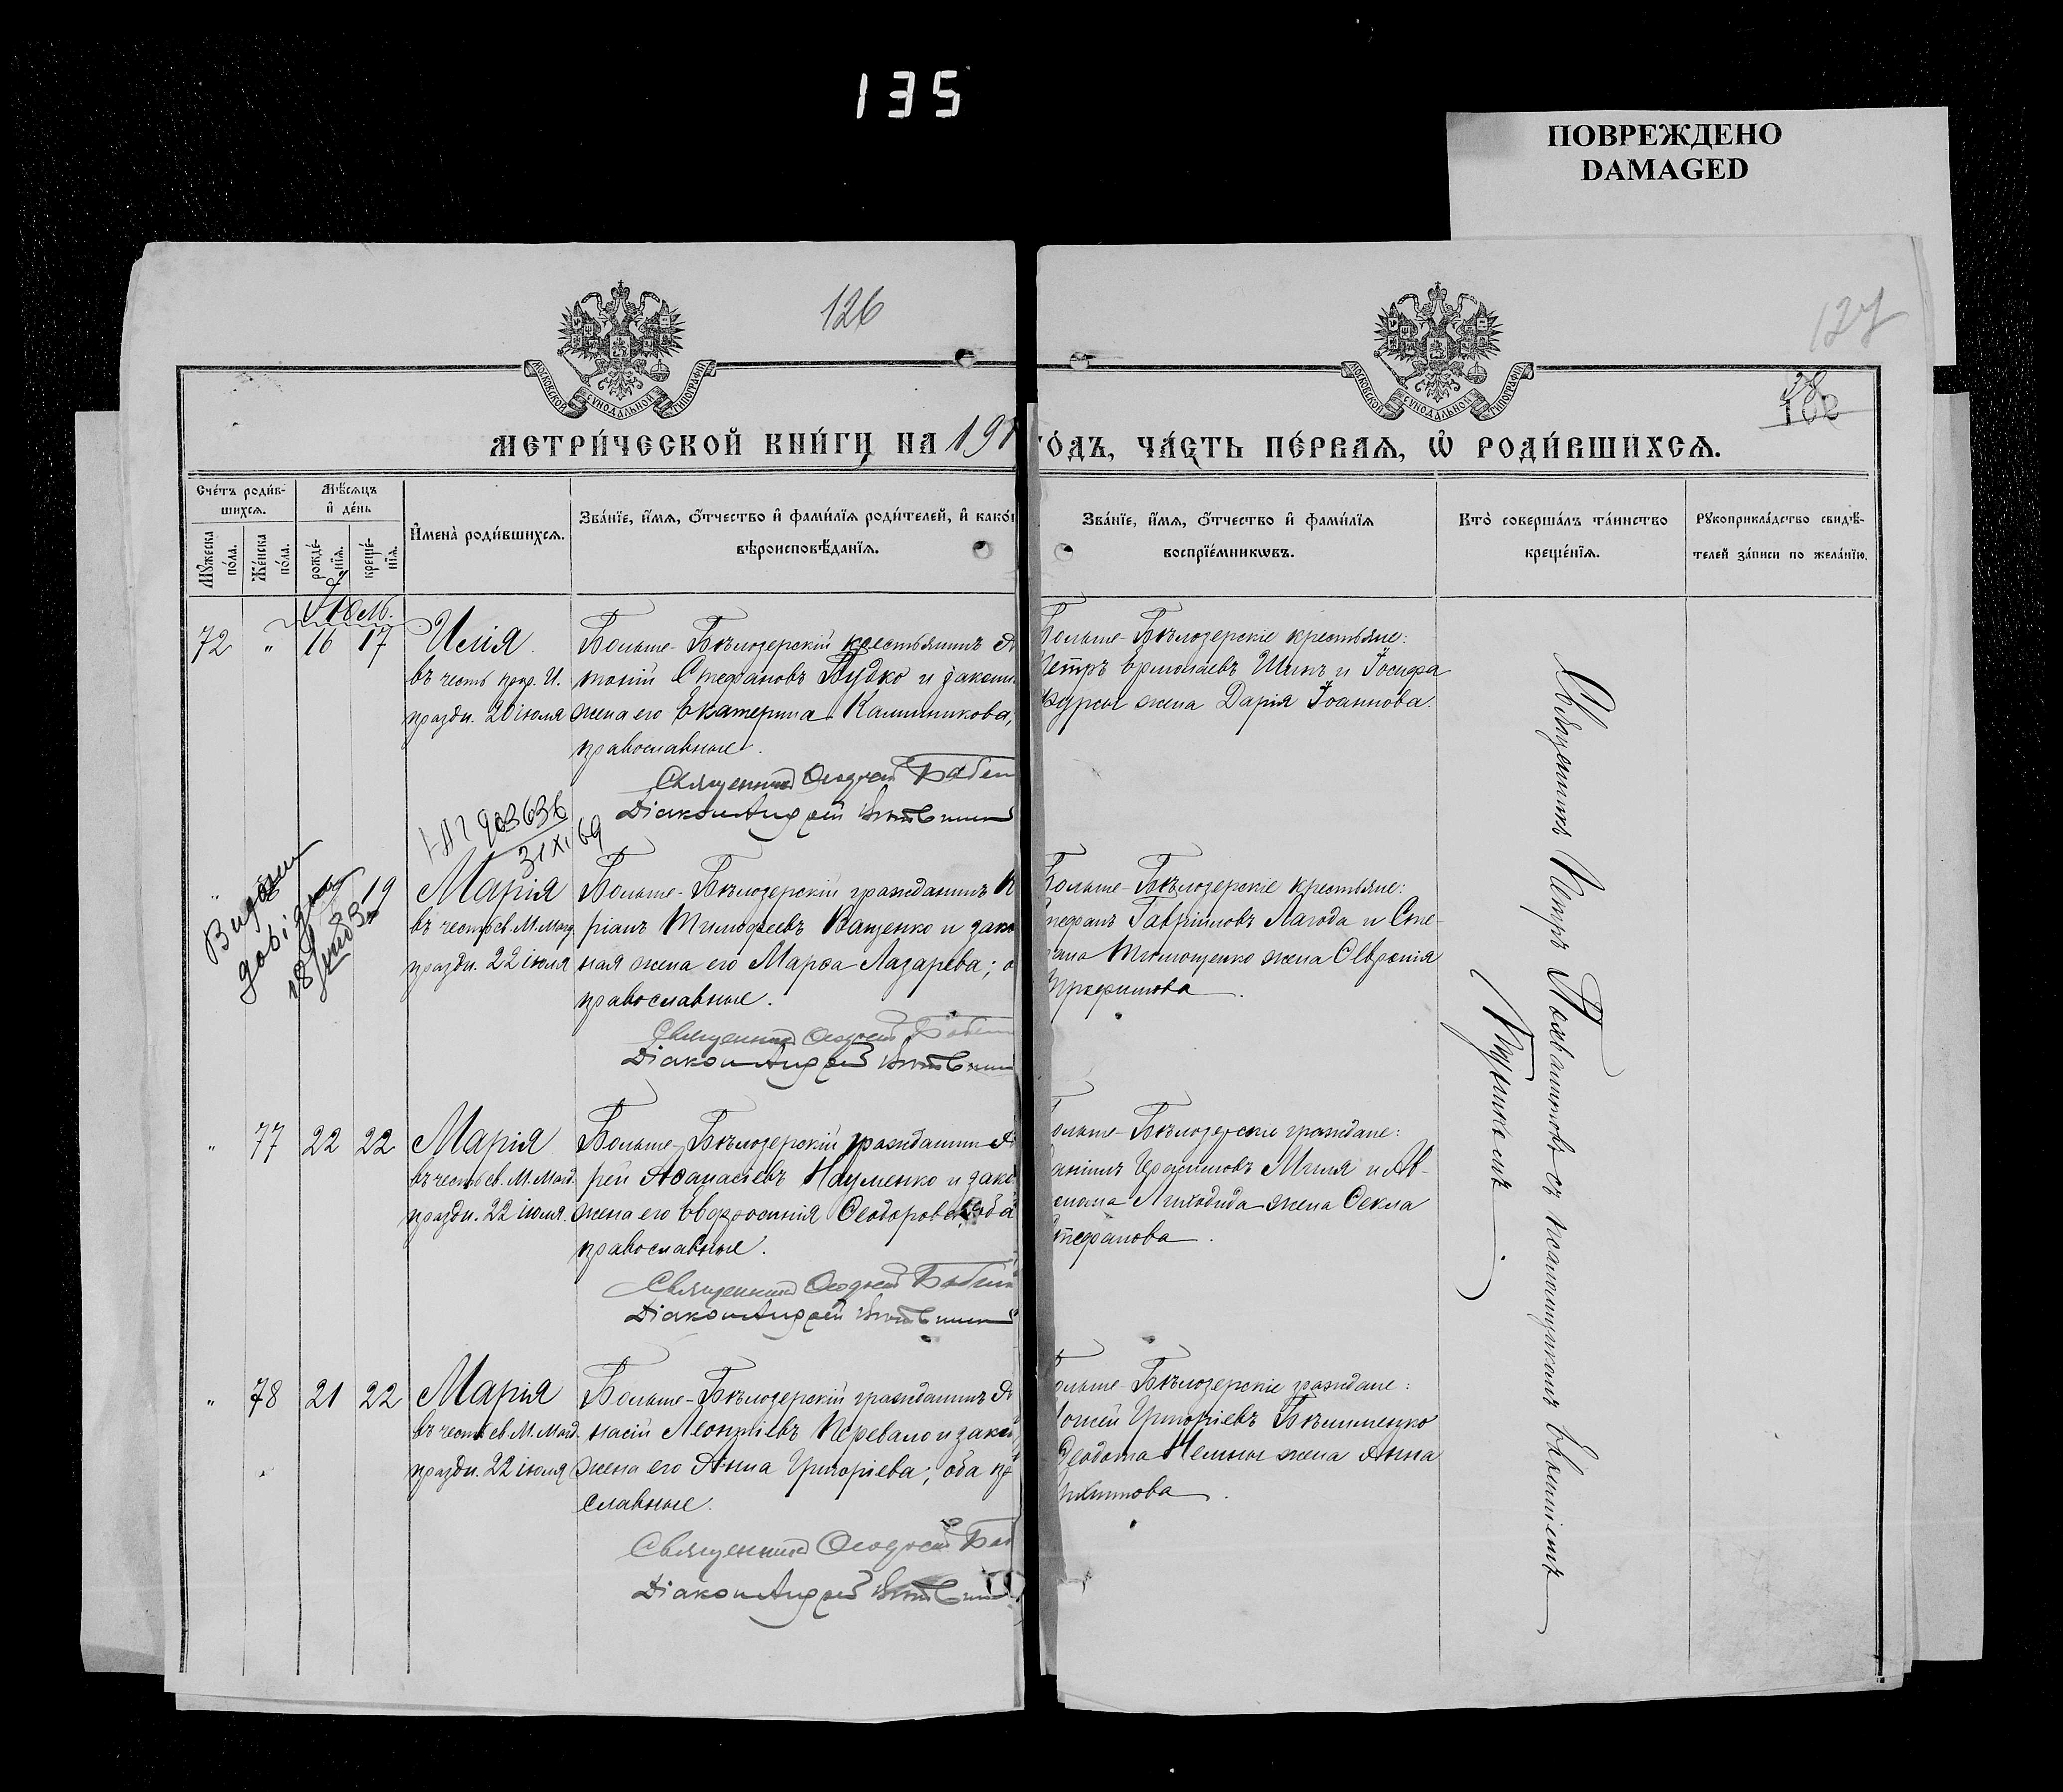 135
ПОВРЕЖДЕНО
DAMAGED
126
127
38
100
МОСКОВСКОЙ СѴНОДАЛЬНОЙ ТИПОГРАФІИ
МОСКОВСКОЙ СѴНОДАЛЬНОЙ ТИПОГРАФІИ
МЕТРИ́ЧЕСКОЙ КНИ́ГИ НА 191
ГО́ДЪ, ЧА́СТЬ ПЕ́РВАѦ, Ѡ҆ РОДИ́ВШИХСѦ.
Сче́тъ роди́в-
шихсѧ.
Мꙋжеска по́ла.
Же́нска по́ла.
Мѣ́сѧцъ
и҆ де́нь
рожде́-нїѧ.
креще́-нїѧ.
И҆мена̀ роди́вшихсѧ.
Зва́нїе, и҆́мѧ, ѻ҆́тчество и҆ фами́лїѧ роди́телей, и҆ како́
вѣроисповѣ́данїѧ.
Зва́нїе, и҆́мѧ, ѻ҆́тчество и҆ фами́лїѧ
воспрїе́мникѡвъ.
Кто̀ соверша́лъ та́инство
креще́нїѧ.
Рꙋкоприкла́дство свидѣ́-
телей за́писи по жела́нїю.
Іюль.
72 " 16 17 Илія
въ честь прор. И.
праздн. 20 іюля
Больше-Бѣлозерскій крестьянинъ Ан
тоній Стефановъ Будко и законн
жена его Екатерина Калинникова,
православные.
Священникъ Ѳеодосій
Діаконъ Андрей
Больше-Бѣлозерскіе крестьяне:
Петръ Ермолаевъ Шинъ и Іосифа
жена Дарія Іоаннова.
903636
31 XI 69
Видали
довідку
" 19 Марія
въ честь св. М. Магд.
праздн. 22 іюля
Больше-Бѣлозерскій гражданинъ К
ріанъ Тимофеевъ Ващенко и зако
ная жена его Марѳа Лазарева; о
православные.
Священникъ Ѳеодосій
Діаконъ Андрей
Больше-Бѣлозерскіе крестьяне:
Стефанъ Гавріиловъ Лагода и Сте-
фана Тимощенко жена Ѳеврѡнія
Трофимова.
" 77 22 22 Марія
въ честь св. М. Магд.
праздн. 22 іюля.
Больше-Бѣлозерскій гражданинъ Ан
рей Аѳанасіевъ Науменко и зако
жена его Евфросинія Ѳеодорова; оба
православные.
Священникъ Ѳеодосій
Діаконъ Андрей
Больше-Бѣлозерскіе граждане:
Даніилъ Герасимовъ Миля и Ав-
Лиходида жена Ѳекла
Стефанова.
" 78 21 22 Марія
въ честь св. М. Магд.
праздн. 22 іюля
Больше-Бѣлозерскій гражданинъ Аѳ
насій Леонтіевъ Перевало и закон
жена его Анна Григоріева; оба пр
славные.
Священникъ Ѳеодосій
Діаконъ Андрей
Больше-Бѣлозерскіе граждане:
Моисей Григоріевъ Бѣлименко
Ѳеодота жена Анна
Никитова.
Священникъ Петръ съ псаломщикомъ Евѳиміемъ